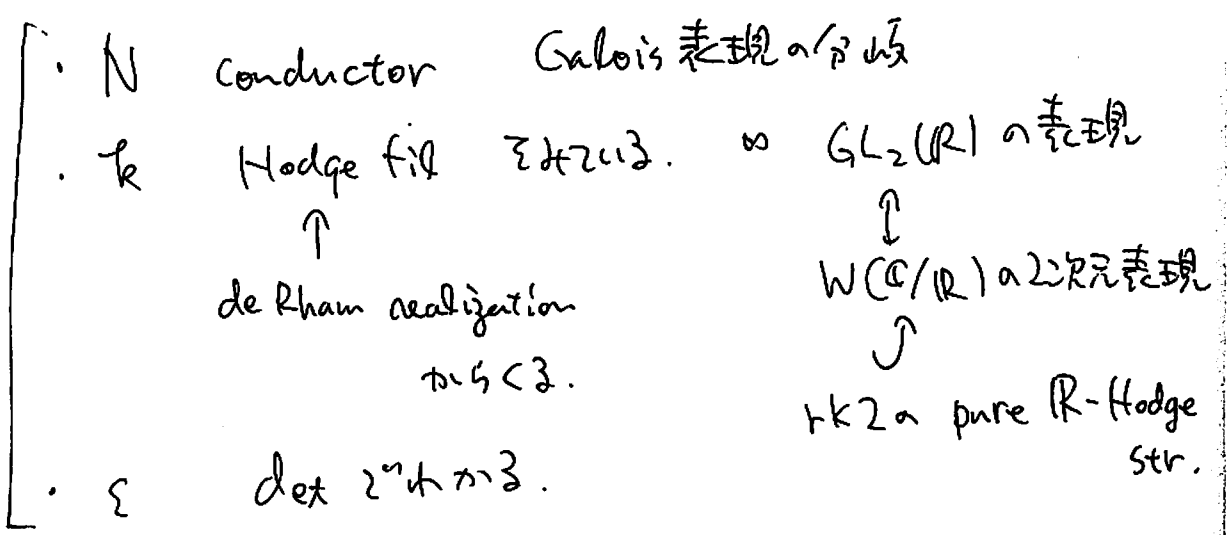 ・ N conductor Galois表現の分岐
・ k Hodge fil をみている. ∞ GL₂(ℝ) の表現
↑ ↕
de Rham realization W(ℂ/ℝ)の2次元表現
からくる.
rk2の pure ℝ-Hodge
str.
・ ε det でわかる.